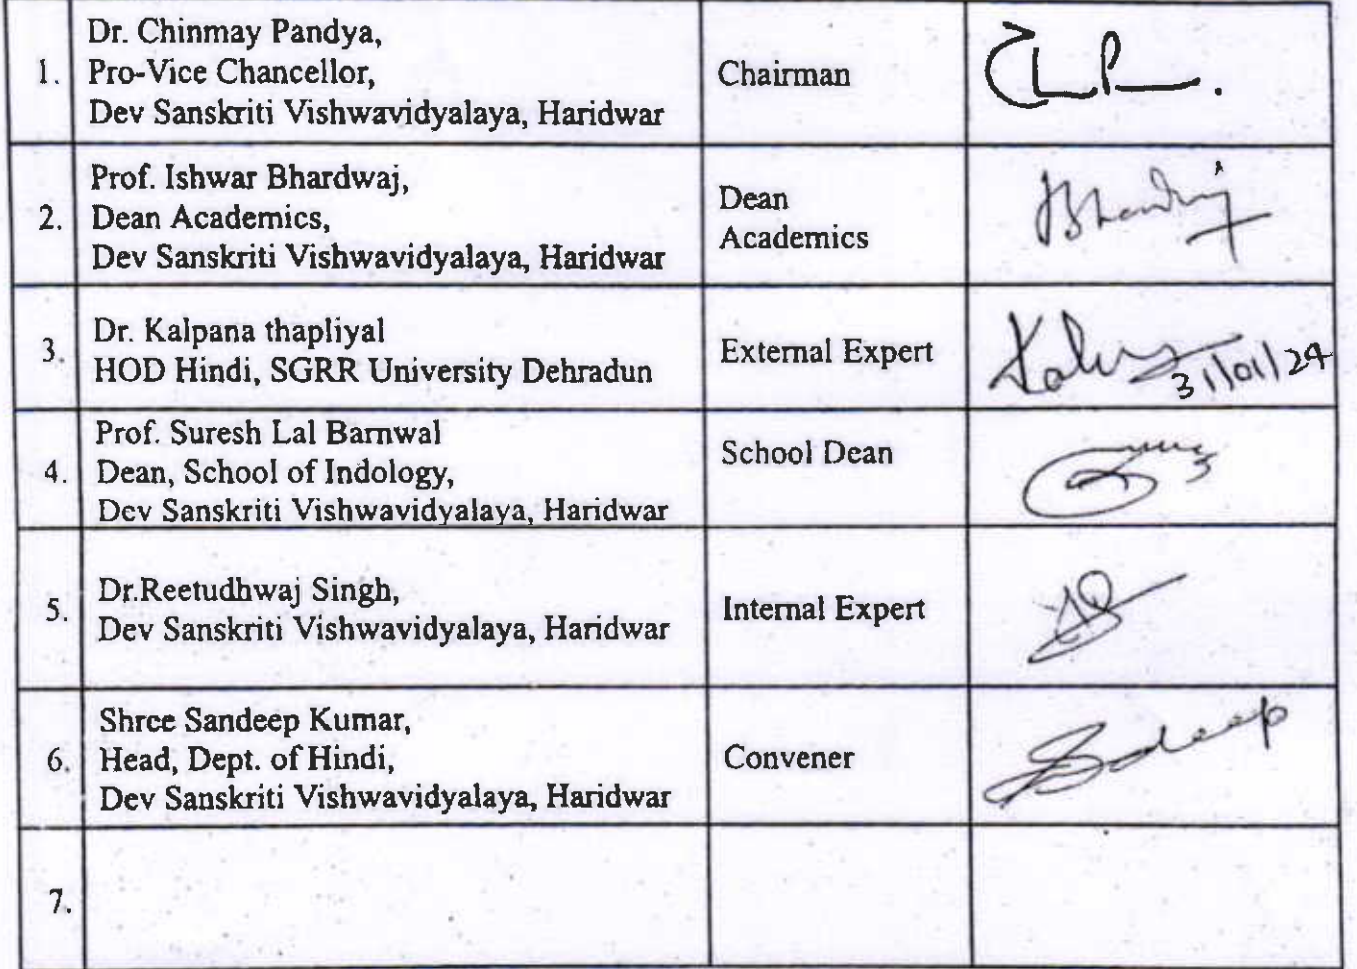 1.
Dr. Chinmay Pandya,
Pro-Vice Chancellor,
Dev Sanskriti Vishwavidyalaya, Haridwar
Chairman
2.
Prof. Ishwar Bhardwaj,
Dean Academics,
Dev Sanskriti Vishwavidyalaya, Haridwar
Dean
Academics
3.
Dr. Kalpana thapliyal
HOD Hindi, SGRR University Dehradun
External Expert
31/01/24
4.
Prof. Suresh Lal Barnwal
Dean, School of Indology,
Dev Sanskriti Vishwavidyalaya, Haridwar
School Dean
5.
Dr.Reetudhwaj Singh,
Dev Sanskriti Vishwavidyalaya, Haridwar
Internal Expert
6.
Shree Sandeep Kumar,
Head, Dept. of Hindi,
Dev Sanskriti Vishwavidyalaya, Haridwar
Convener
7.